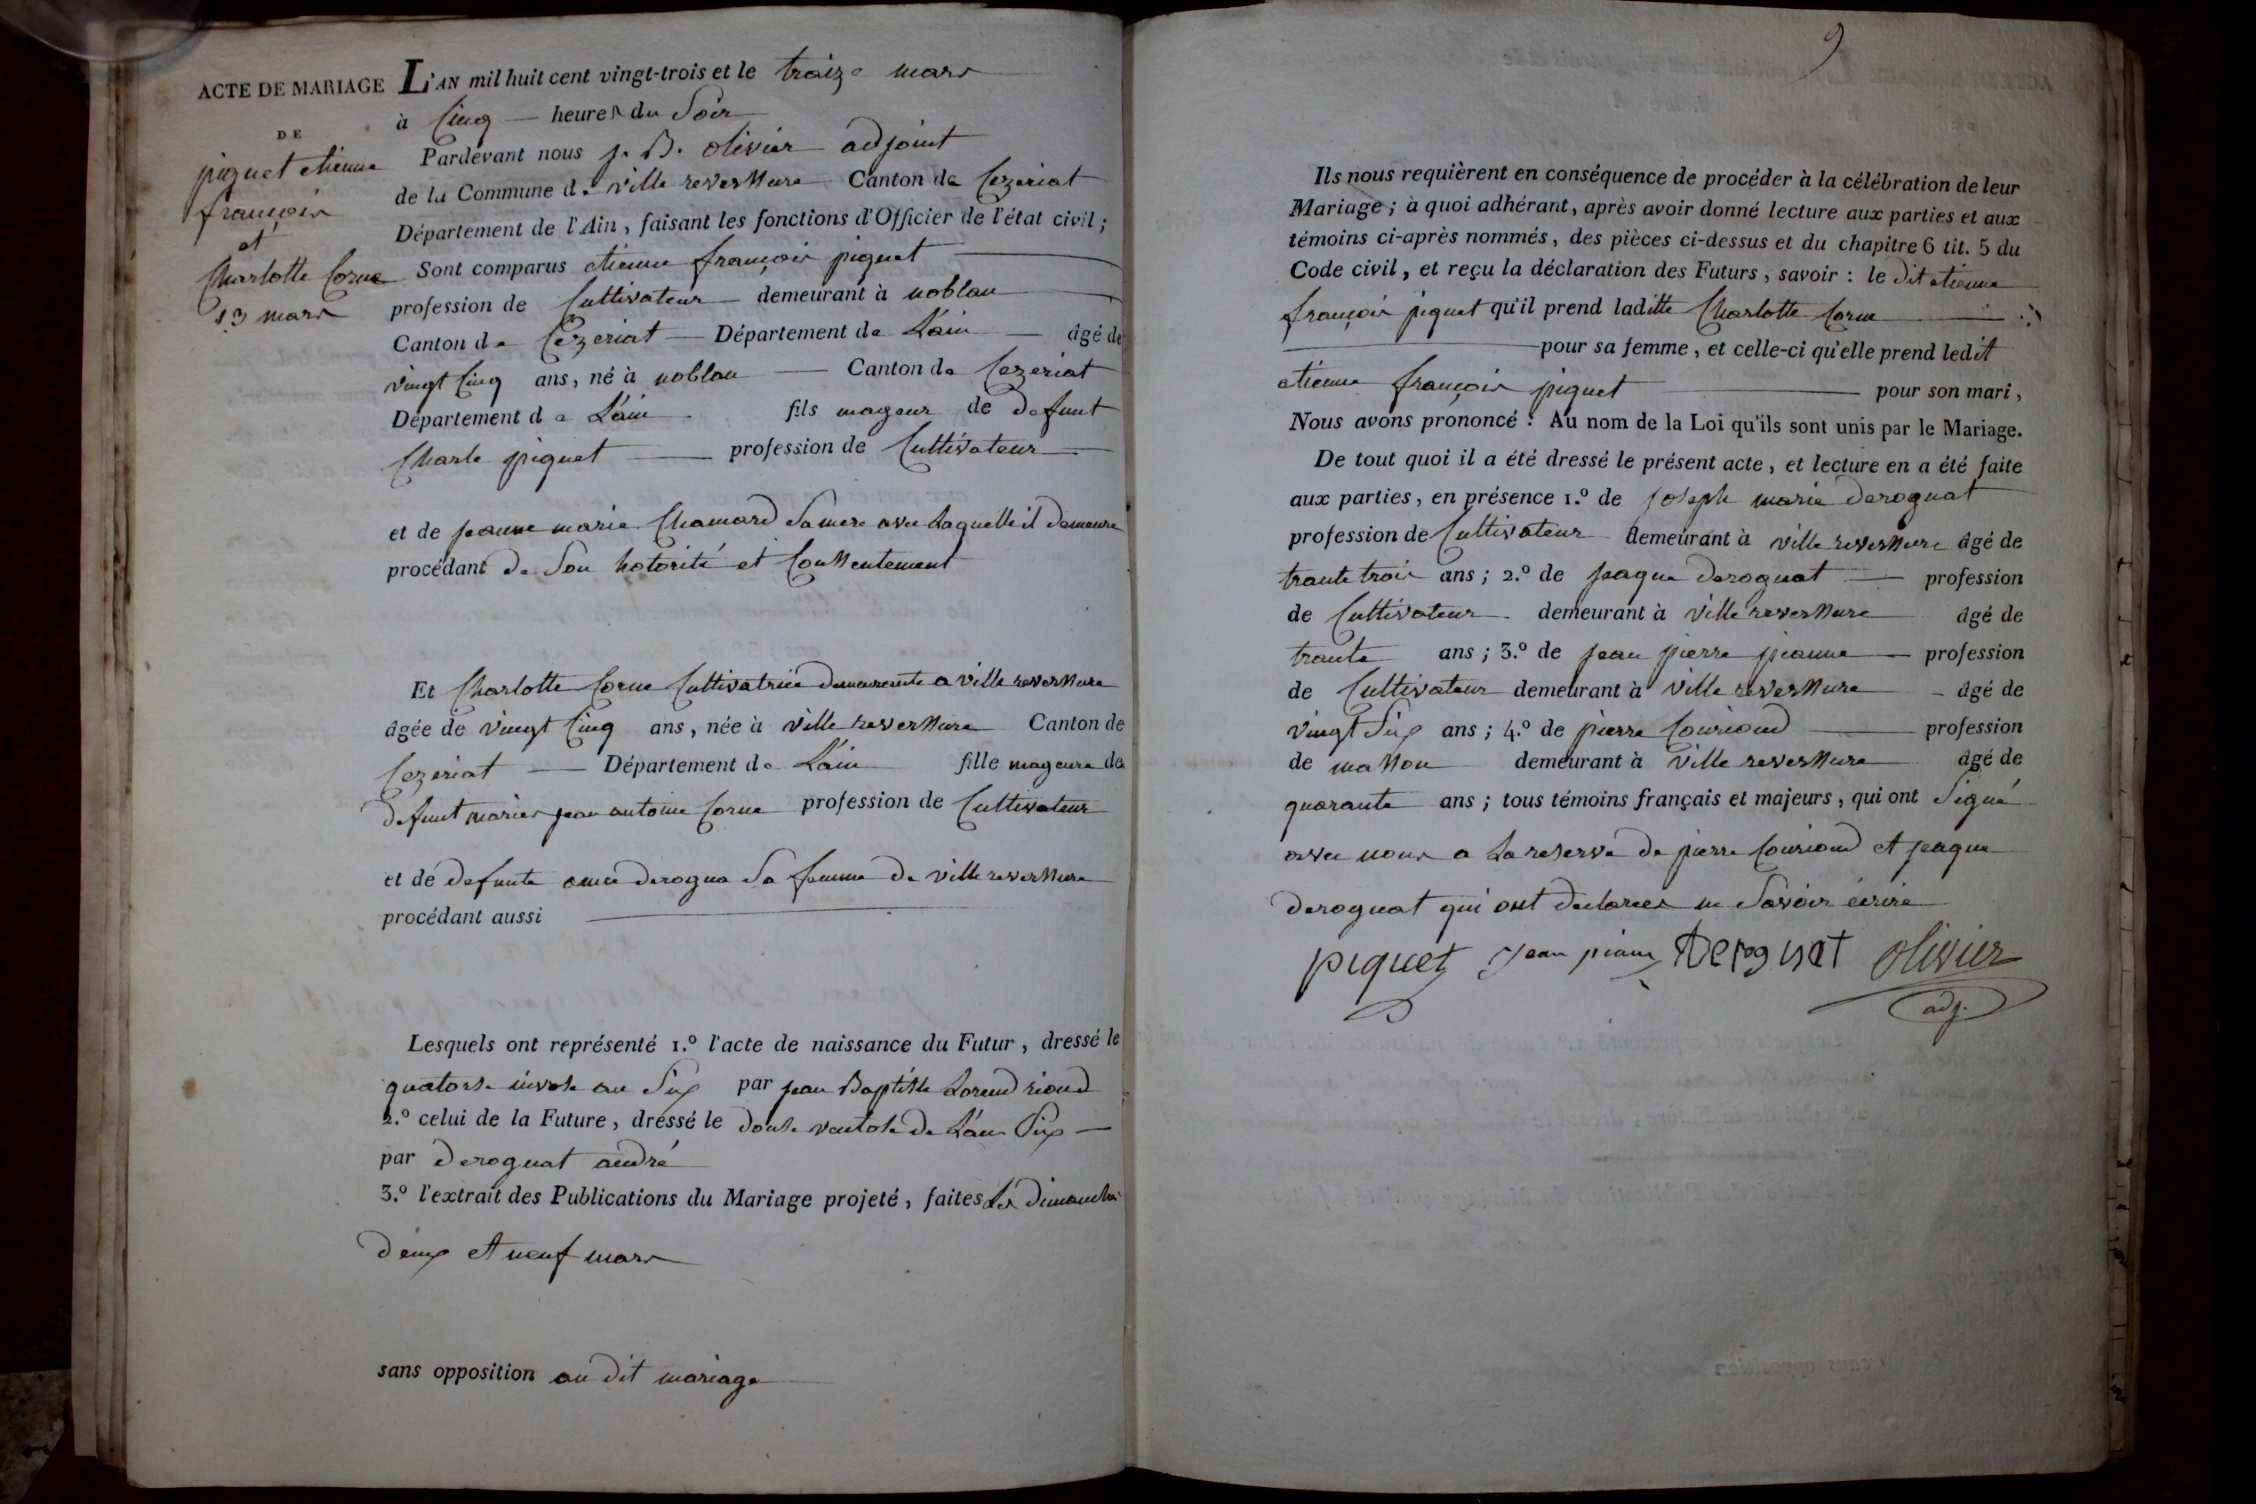 ACTE DE MARIAGE
DE
piquet etienne
françois
et
Charlotte Corne
13 mars
L'AN mil huit cent vingt-trois et le traize mars
à Cinq heures du Soir
Pardevant nous j. B. olivier adjoint
de la Commune de ville reversure Canton de Cezeriat
Département de l'Ain, faisant les fonctions d'Officier de l'état civil ;
Sont comparus etienne françois piquet
profession de Cultivateur demeurant à noblan
Canton de Cezeriat Département de L'ain âgé de
vingt Cinq ans, né à noblan Canton de Cezeriat
Département de L'ain fils mageur de defunt
Charle piquet profession de Cultivateur
et de jeanne marie Chamard Sa mere avec Laquelle il demeure
procédant de Son hotorité et Consentement
Et Charlotte Corne Cultivatrice demeurente a ville reversure
âgée de vingt Cinq ans, née à ville reversure Canton de
Cezeriat Département de L'ain fille mageure de
defunt jean antoine Corne profession de Cultivateur
et de defunte derogna Sa femme de ville reversure
procédant aussi
Lesquels ont représenté 1.º l'acte de naissance du Futur, dressé le
quatorse nivose an Six par jean Baptiste
2.º celui de la Future, dressé le douse ventose de L'an Six
par deroguat andré
3.º l'extrait des Publications du Mariage projeté, faites Les dimanche
deux et neuf mars
sans opposition au dit mariage
9
Ils nous requièrent en conséquence de procéder à la célébration de leur
Mariage ; à quoi adhérant, après avoir donné lecture aux parties et aux
témoins ci-après nommés, des pièces ci-dessus et du chapitre 6 tit. 5 du
Code civil, et reçu la déclaration des Futurs, savoir : le dit etienne
françois piquet qu'il prend laditte Charlotte Corne
pour sa femme, et celle-ci qu'elle prend ledit
etienne françois piquet pour son mari,
Nous avons prononcé : Au nom de la Loi qu'ils sont unis par le Mariage.
De tout quoi il a été dressé le présent acte, et lecture en a été faite
aux parties, en présence 1.º de joseph marie deroguat
profession de Cultivateur demeurant à ville reversure âgé de
trante trois ans ; 2.º de jaque deroguat profession
de Cultivateur demeurant à ville reversure âgé de
trante ans ; 3.º de jean pierre pianne profession
de Cultivateur demeurant à ville reversure âgé de
vingt Six ans ; 4.º de pierre Courioud profession
de masson demeurant à ville reversure âgé de
quarante ans ; tous témoins français et majeurs, qui ont Signé
avec nous a La reserve de pierre Courioud et jaque
deroguat qui ont declarer ne Savoir écrire
piquet jean Deroguat olivier
adj.